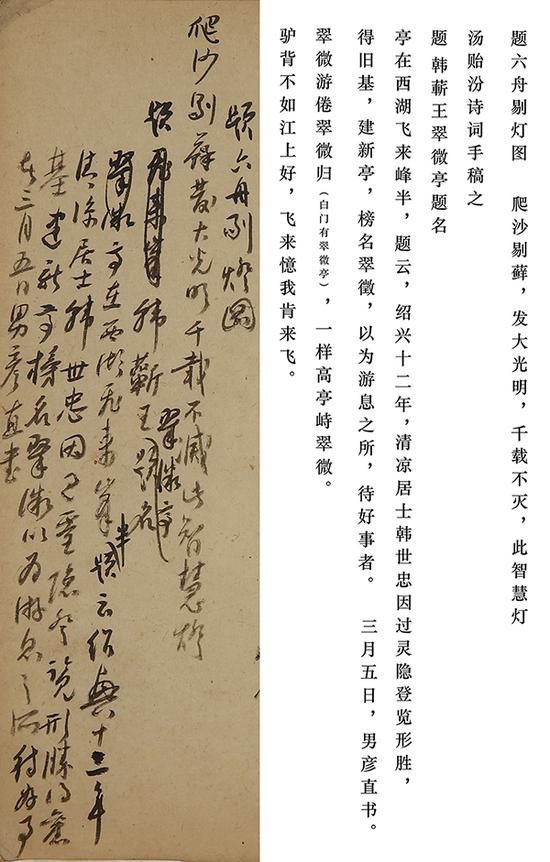 题六舟剔灯图 爬沙剔藓，发大光明，千载不灭，此智慧灯
汤贻汾诗词手稿之
题韩蕲王翠微亭题名
亭在西湖飞来峰半，题云，绍兴十二年，清凉居士韩世忠因过灵隐登览形胜，
得旧基，建新亭，榜名翠徵，以为游息之所，待好事者。 三月五日，男彦直书。
翠微游倦翠微归（白门有翠微亭），一样高亭峙翠微。
驴背不如江上好，飞来憶我肯来飞。
題六舟剔燈圖
爬沙剔蘚發大光明千載不滅此智慧燈
題飛来峯韓蘄王翠微亭題名
翠微亭在西湖飛来峯半題云紹興十二年
清涼居士韓世忠因過靈隐登覽形勝得舊
基建新亭榜名翠微以為游息之所待好事
者三月五日男彦直書